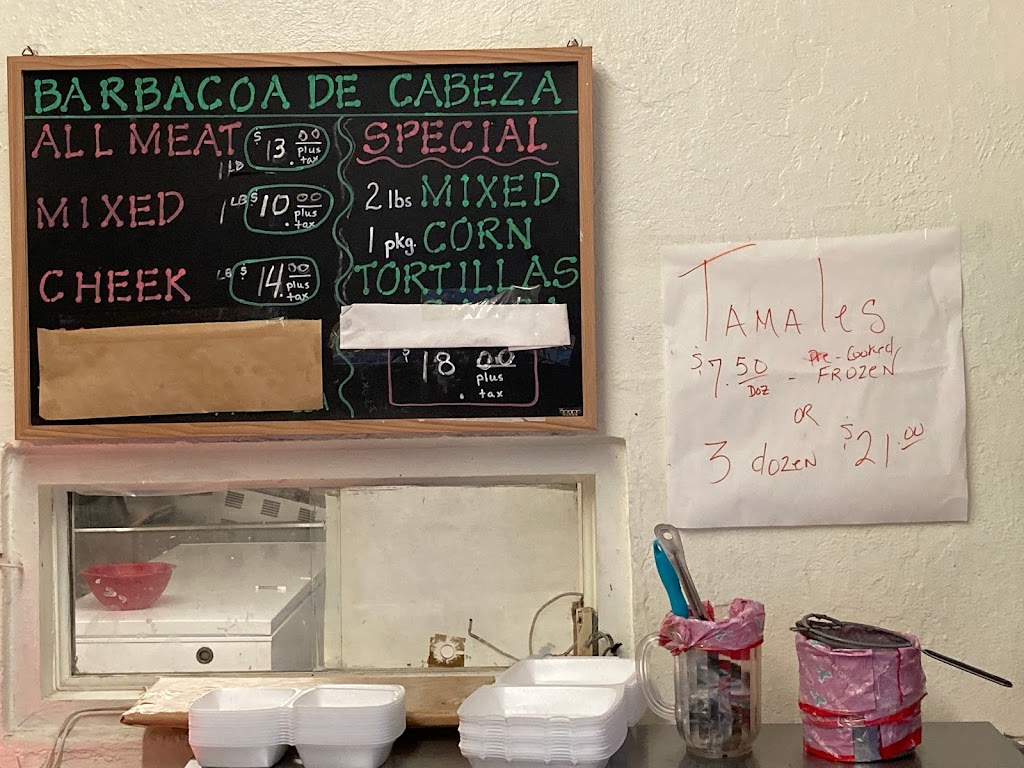 BARBACOA DE CABEZA
ALL MEAT 1 LB $13.00 plus tax
MIXED 1 LB $10.00 plus tax
CHEEK LB $14.00 plus tax
SPECIAL
2 lbs MIXED
1 pkg. CORN
TORTILLAS
$18.00
plus
tax
TAMAles
$7.50 DOZ - Pre-Cooked/FROZEN
OR
3 dozen $21.00